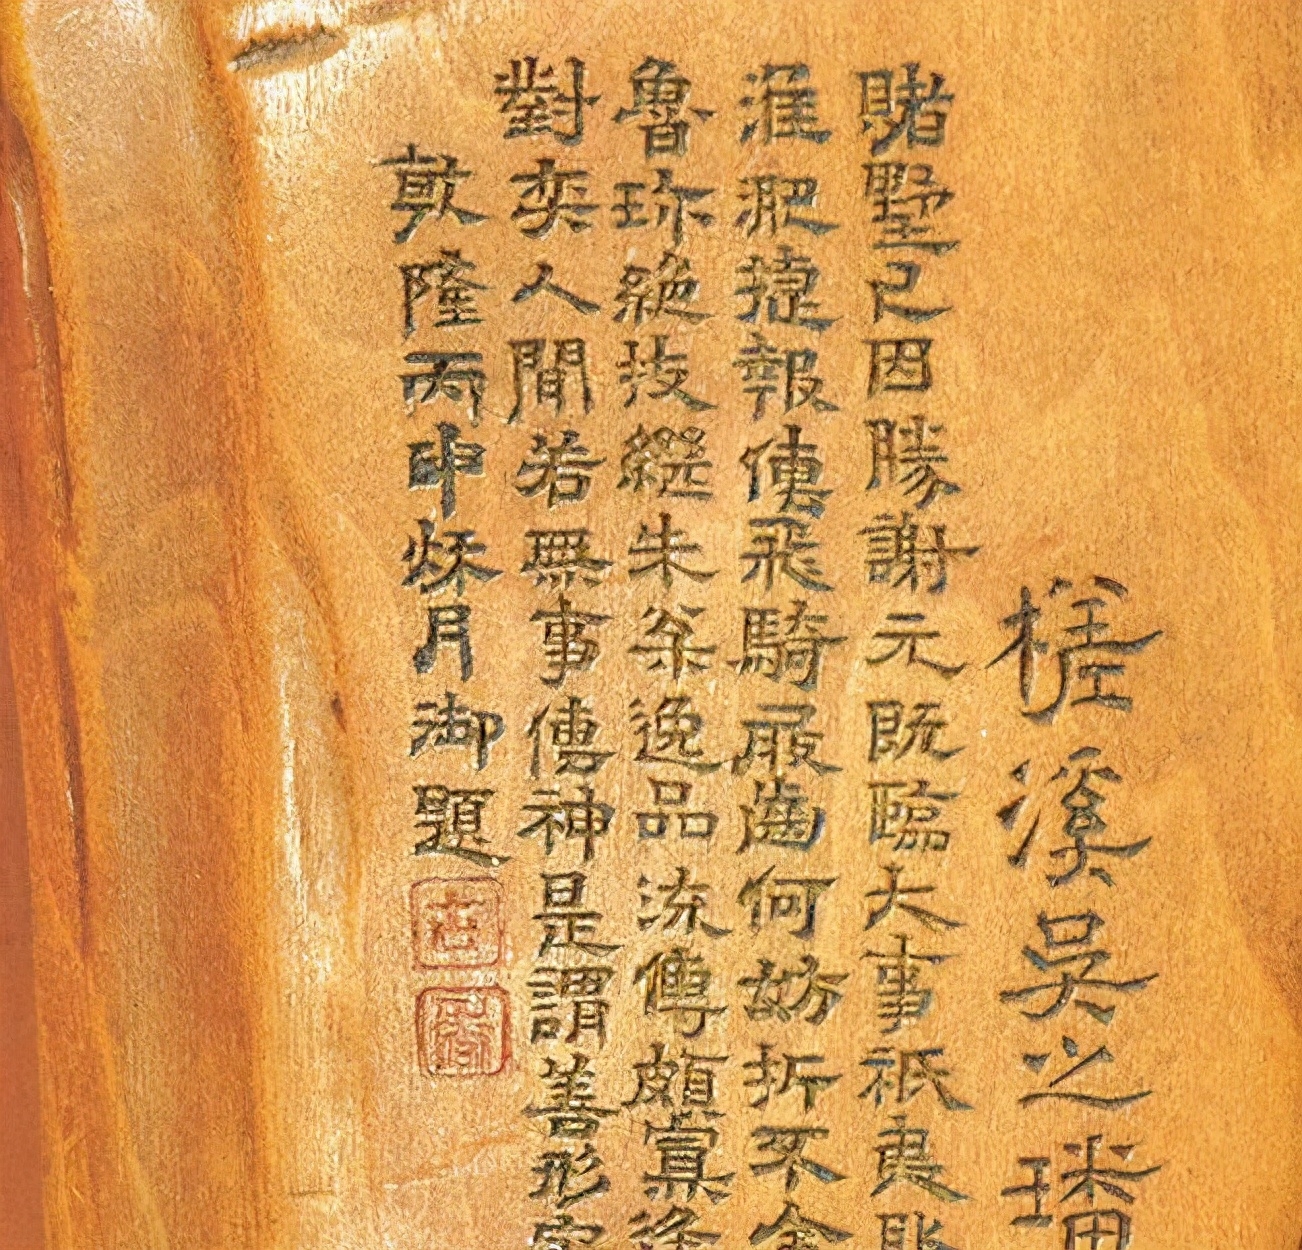 槎溪吳之璠
賭墅已因勝謝元既臨大事祗夷
淮淝捷報傳飛騎屐齒何妨折不全
魯珍絕技繼朱翁逸品流傳頗寡逢
對奕人間若無事傳神是謂善形
乾隆丙申秌月御題
古
香